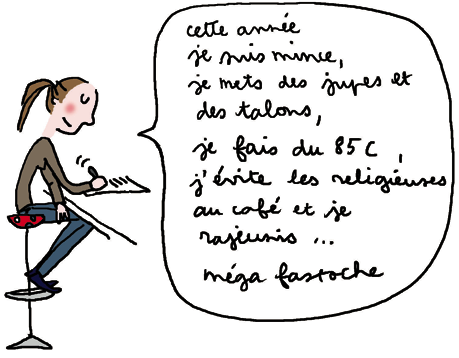 cette année
je suis mince,
je mets des jupes et
des talons,
je fais du 85 C,
j'évite les religieuses
au café et je
rajeunis ...
méga fastoche